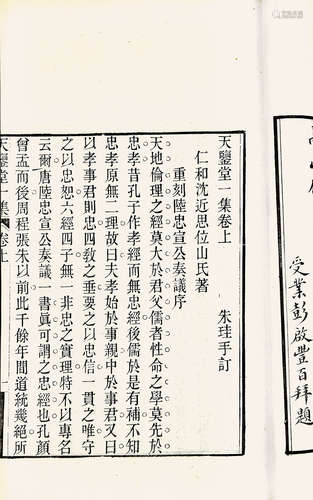 受業彭啟豐百拜題
天鑒堂一集卷上
仁和沈近思位山氏著　朱珪手訂
重刻陸忠宣公奏議序
天地倫理之經莫大於君父儒者性命之學莫先於
忠孝昔孔子作孝經而無忠經後儒於是有補不知
忠孝原無二理故曰夫孝始於事親中於事君又曰
以孝事君則忠四敎之垂要之以忠信一貫之唯守
之以忠恕六經四子無一非忠之實理特不以專名
云爾唐陸忠宣公奏議一書眞可謂之忠經也孔顏
曾孟而後周程張朱以前此千餘年間道統幾絕所
天鑒堂一集 卷上